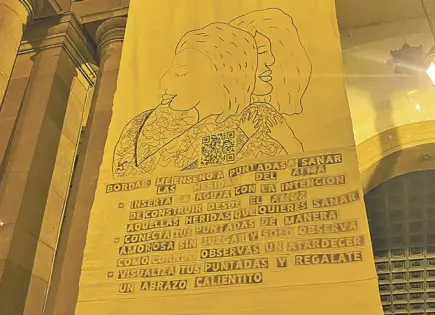 BORDAR ME ENSEÑO A PUNTADAS A SANAR
LAS HERIDAS DEL ALMA
- INSERTA LA AGUJA CON LA INTENCIÓN
DECONSTRUIR DESDE EL AMOR
AQUELLAS HERIDAS QUE QUIERES SANAR
- CONECTA TUS PUNTADAS DE MANERA
AMOROSA SIN JUZGAR Y SOLO OBSERVA
COMO CUANDO OBSERVAS UN ATARDECER
- VISUALIZA TUS PUNTADAS Y REGALATE
UN ABRAZO CALIENTITO